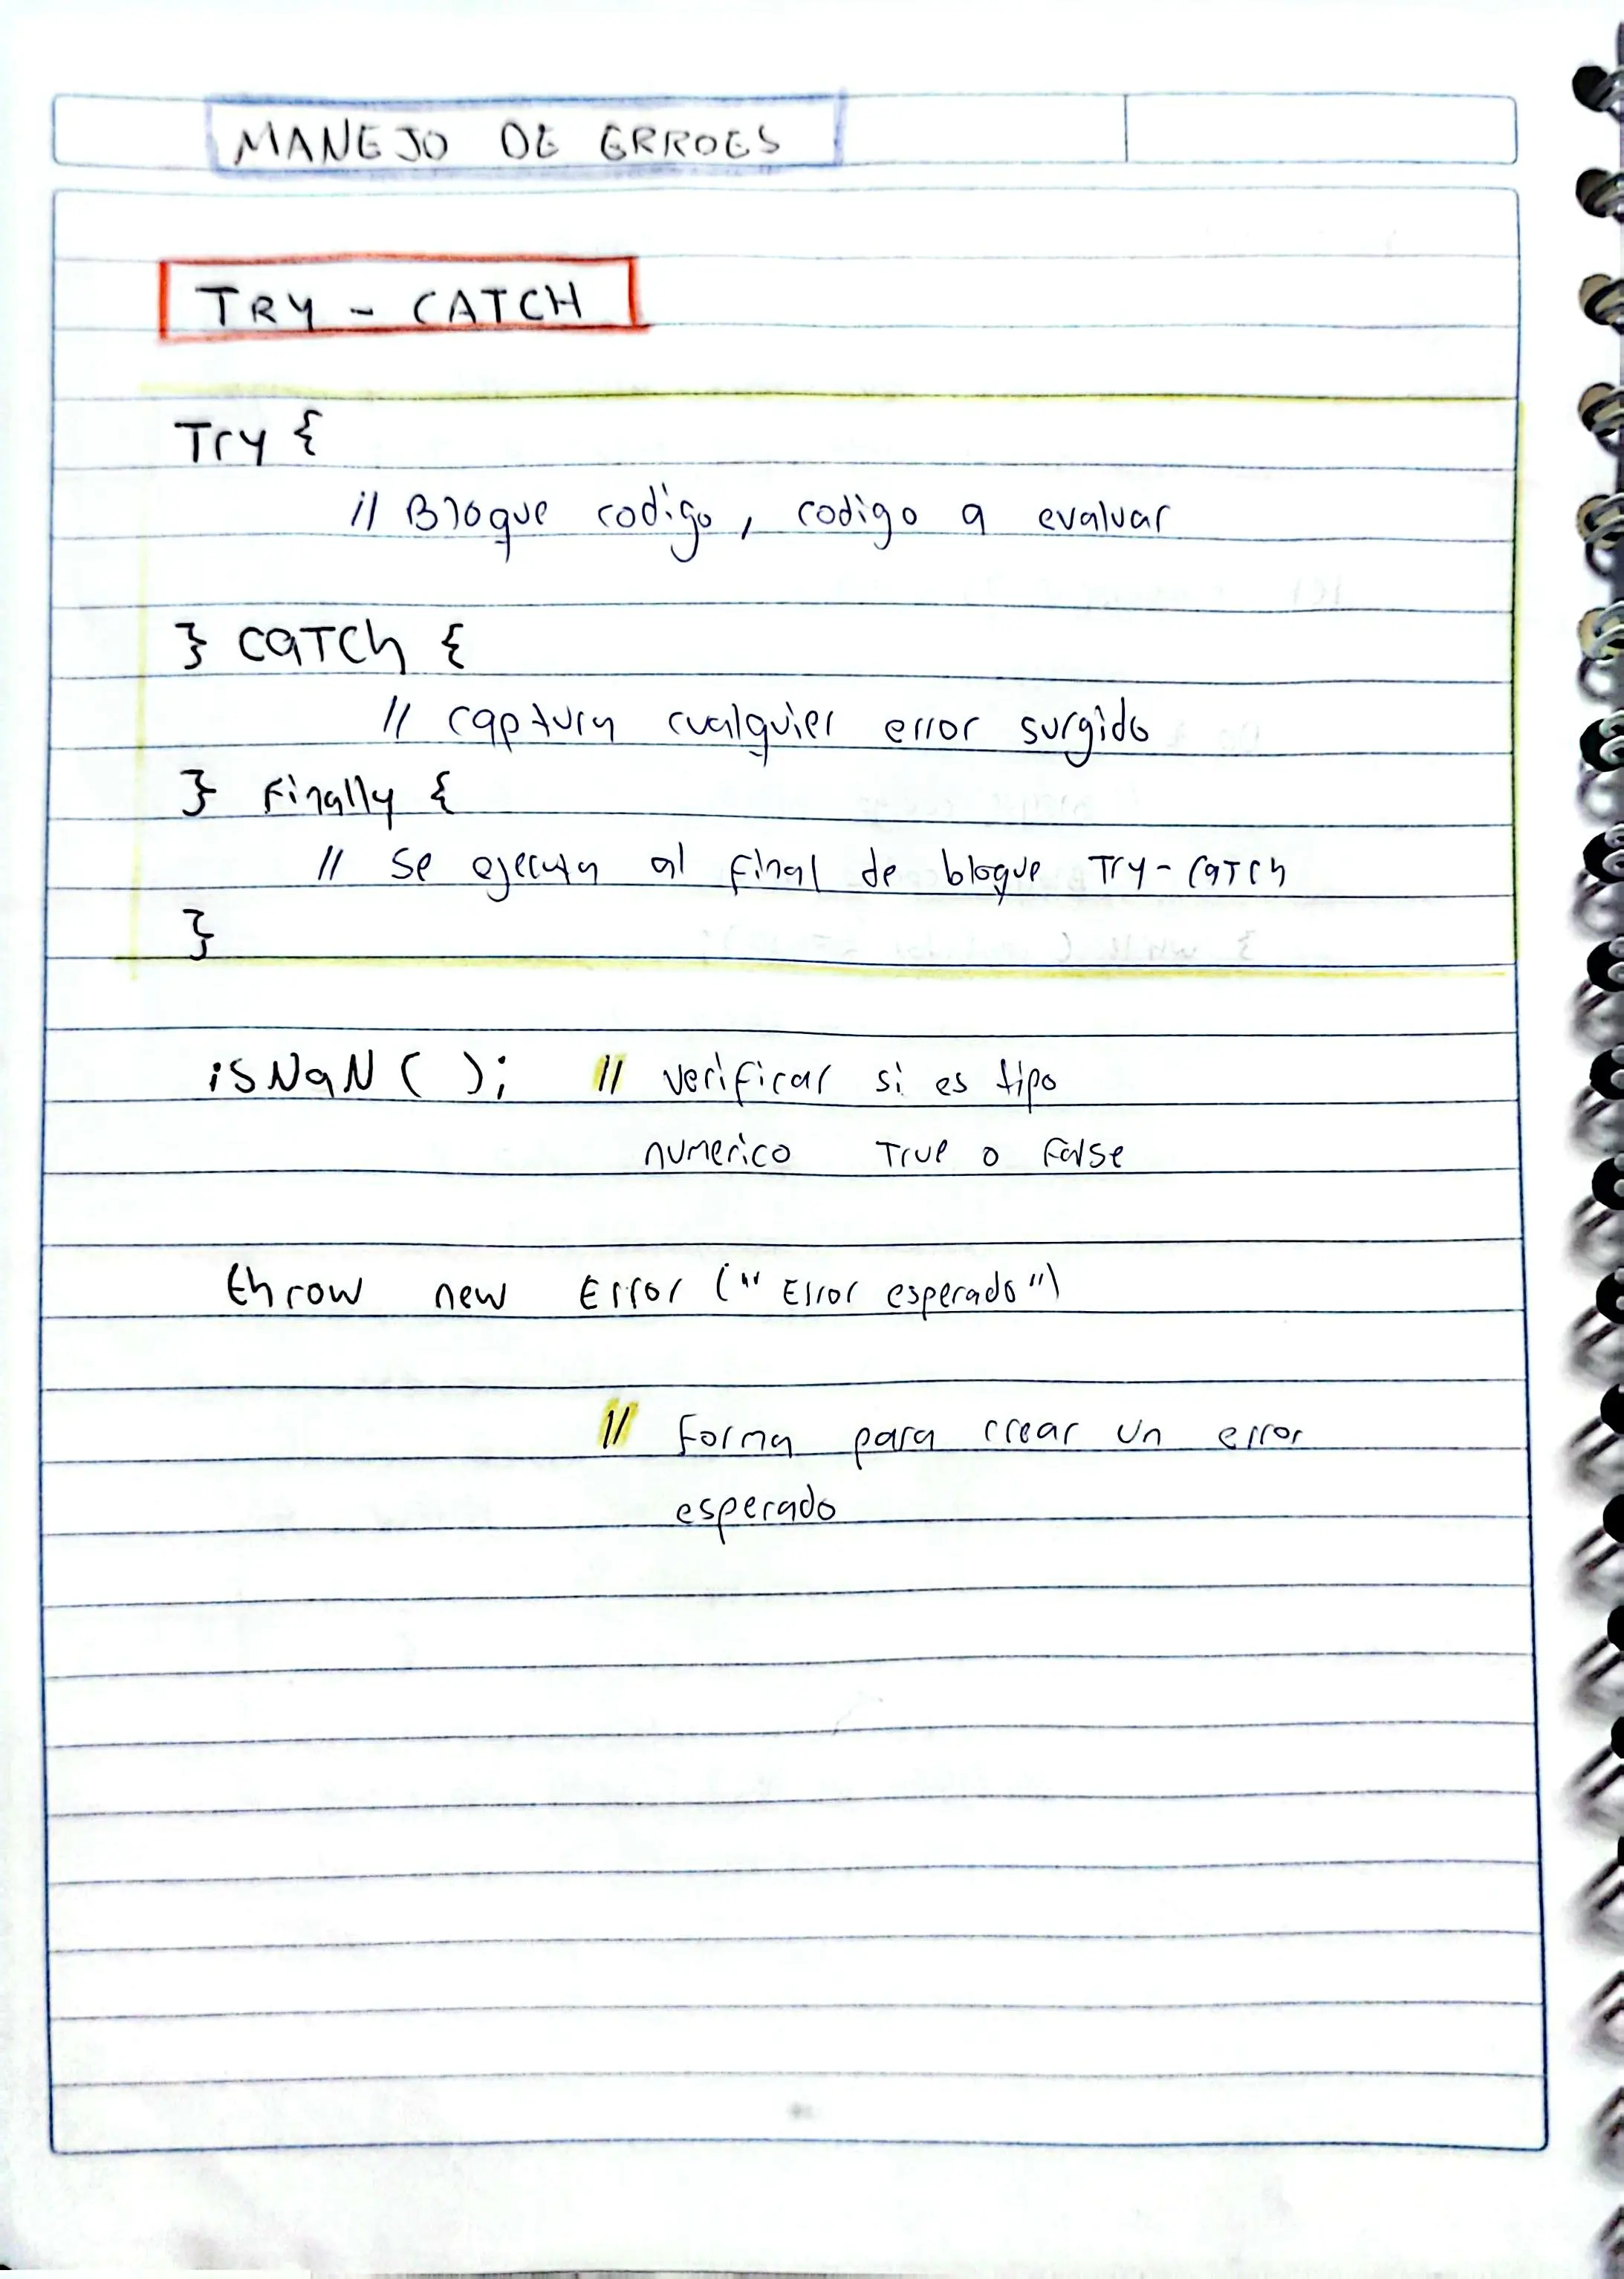 MANEJO DE ERROES
TRY - CATCH
Try {
// Bloque codigo, codigo a evaluar
} catch {
// captura cualquier error surgido
} Finally {
// Se ejecuta al final de bloque Try-catch
}
isNaN ( ); // verificar si es tipo
numerico True o False
throw new Error ("Error esperado")
// Forma para crear un error
esperado